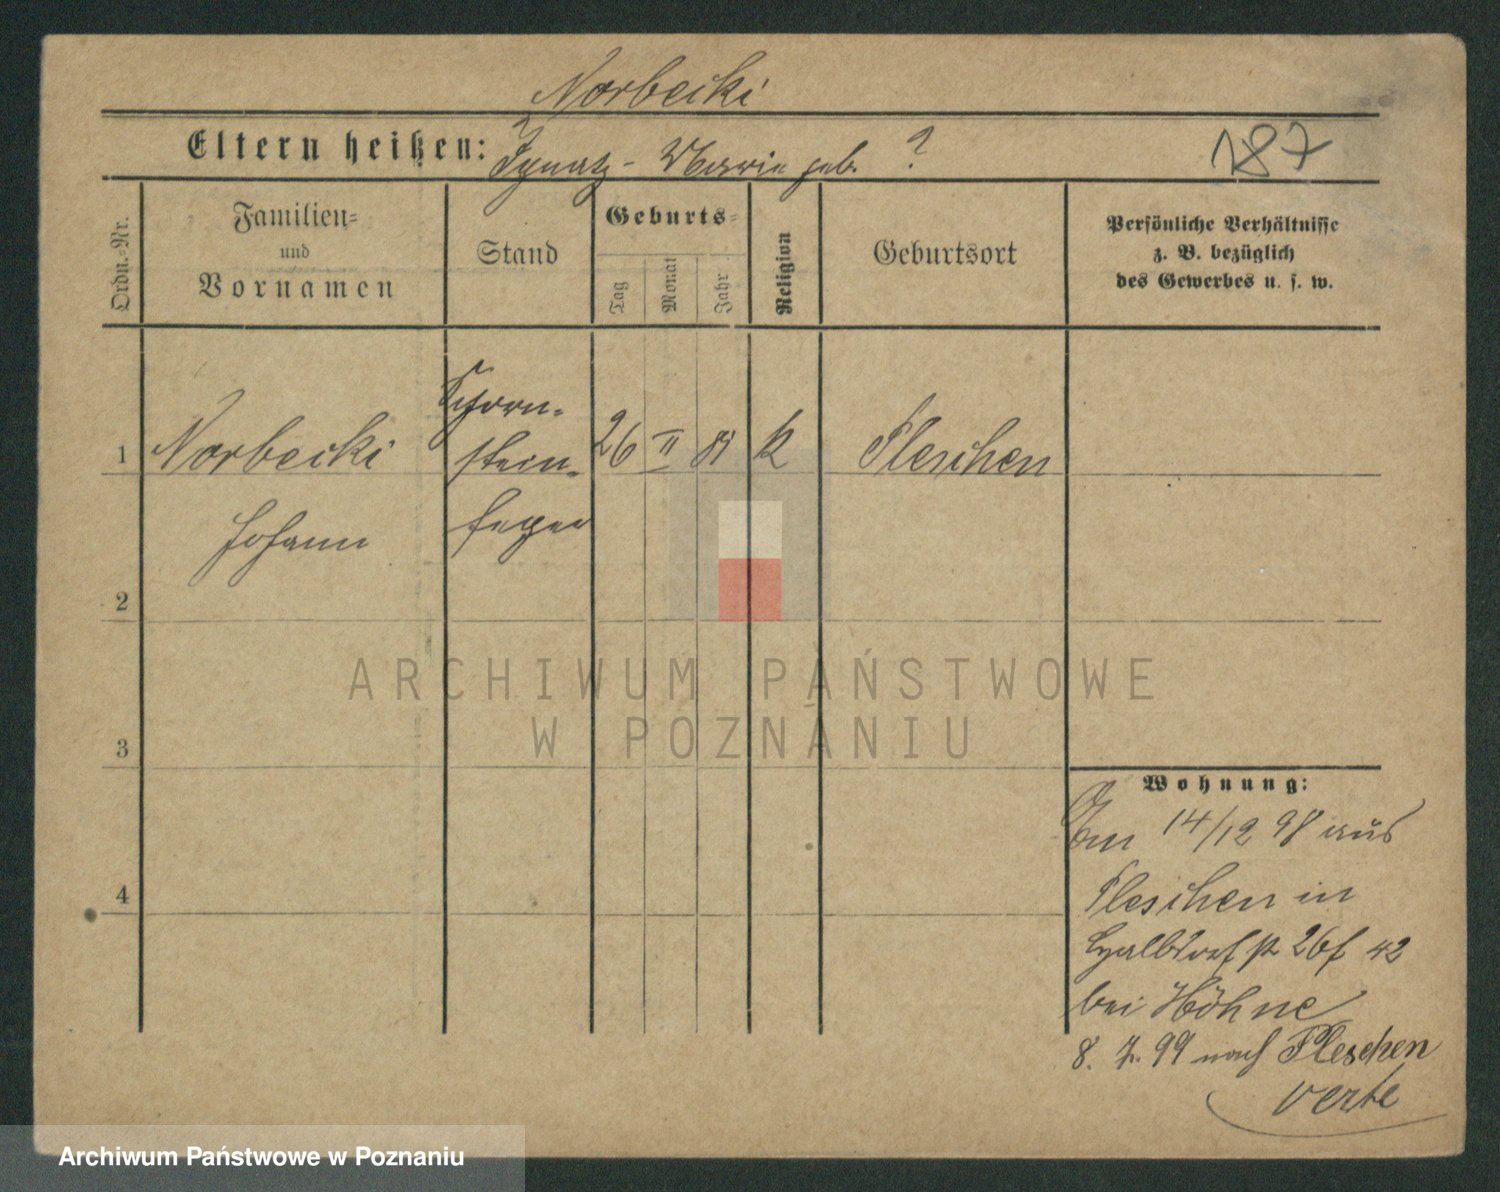 Norbecki
Eltern heißen: Ignatz - Marie geb. ?
187
Ordn.=Nr.
Familien=
und
Vornamen
Stand
Geburts=
Tag
Monat
Jahr
Religion
Geburtsort
Persönliche Verhältnisse
z. B. bezüglich
des Gewerbes u. s. w.
1 Norbecki
Johann
Schorn-
stein-
feger
26 II 81 K Pleschen
2
3
4
ARCHIWUM PAŃSTWOWE
W POZNANIU
Wohnung:
Am 14/12 98 aus
Pleschen in
Halbdorfst 26f 42
bei Höhne
8. 7. 99 nach Pleschen
verte
Archiwum Państwowe w Poznaniu